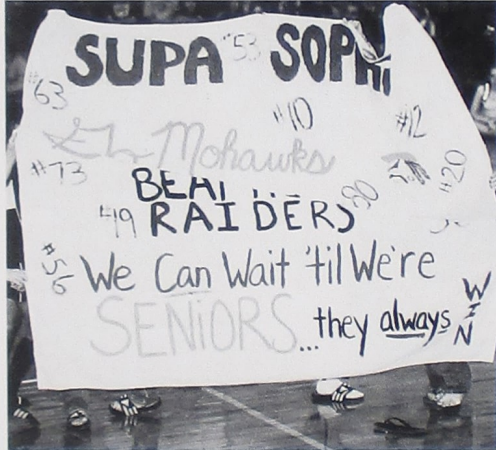 SUPA #53 SOPH
#63
#10
#12
Mohawks
#73
#20
BEAT
30
#49 RAIDERS
#56
We Can Wait 'til We're
SENIORS...they always WIN